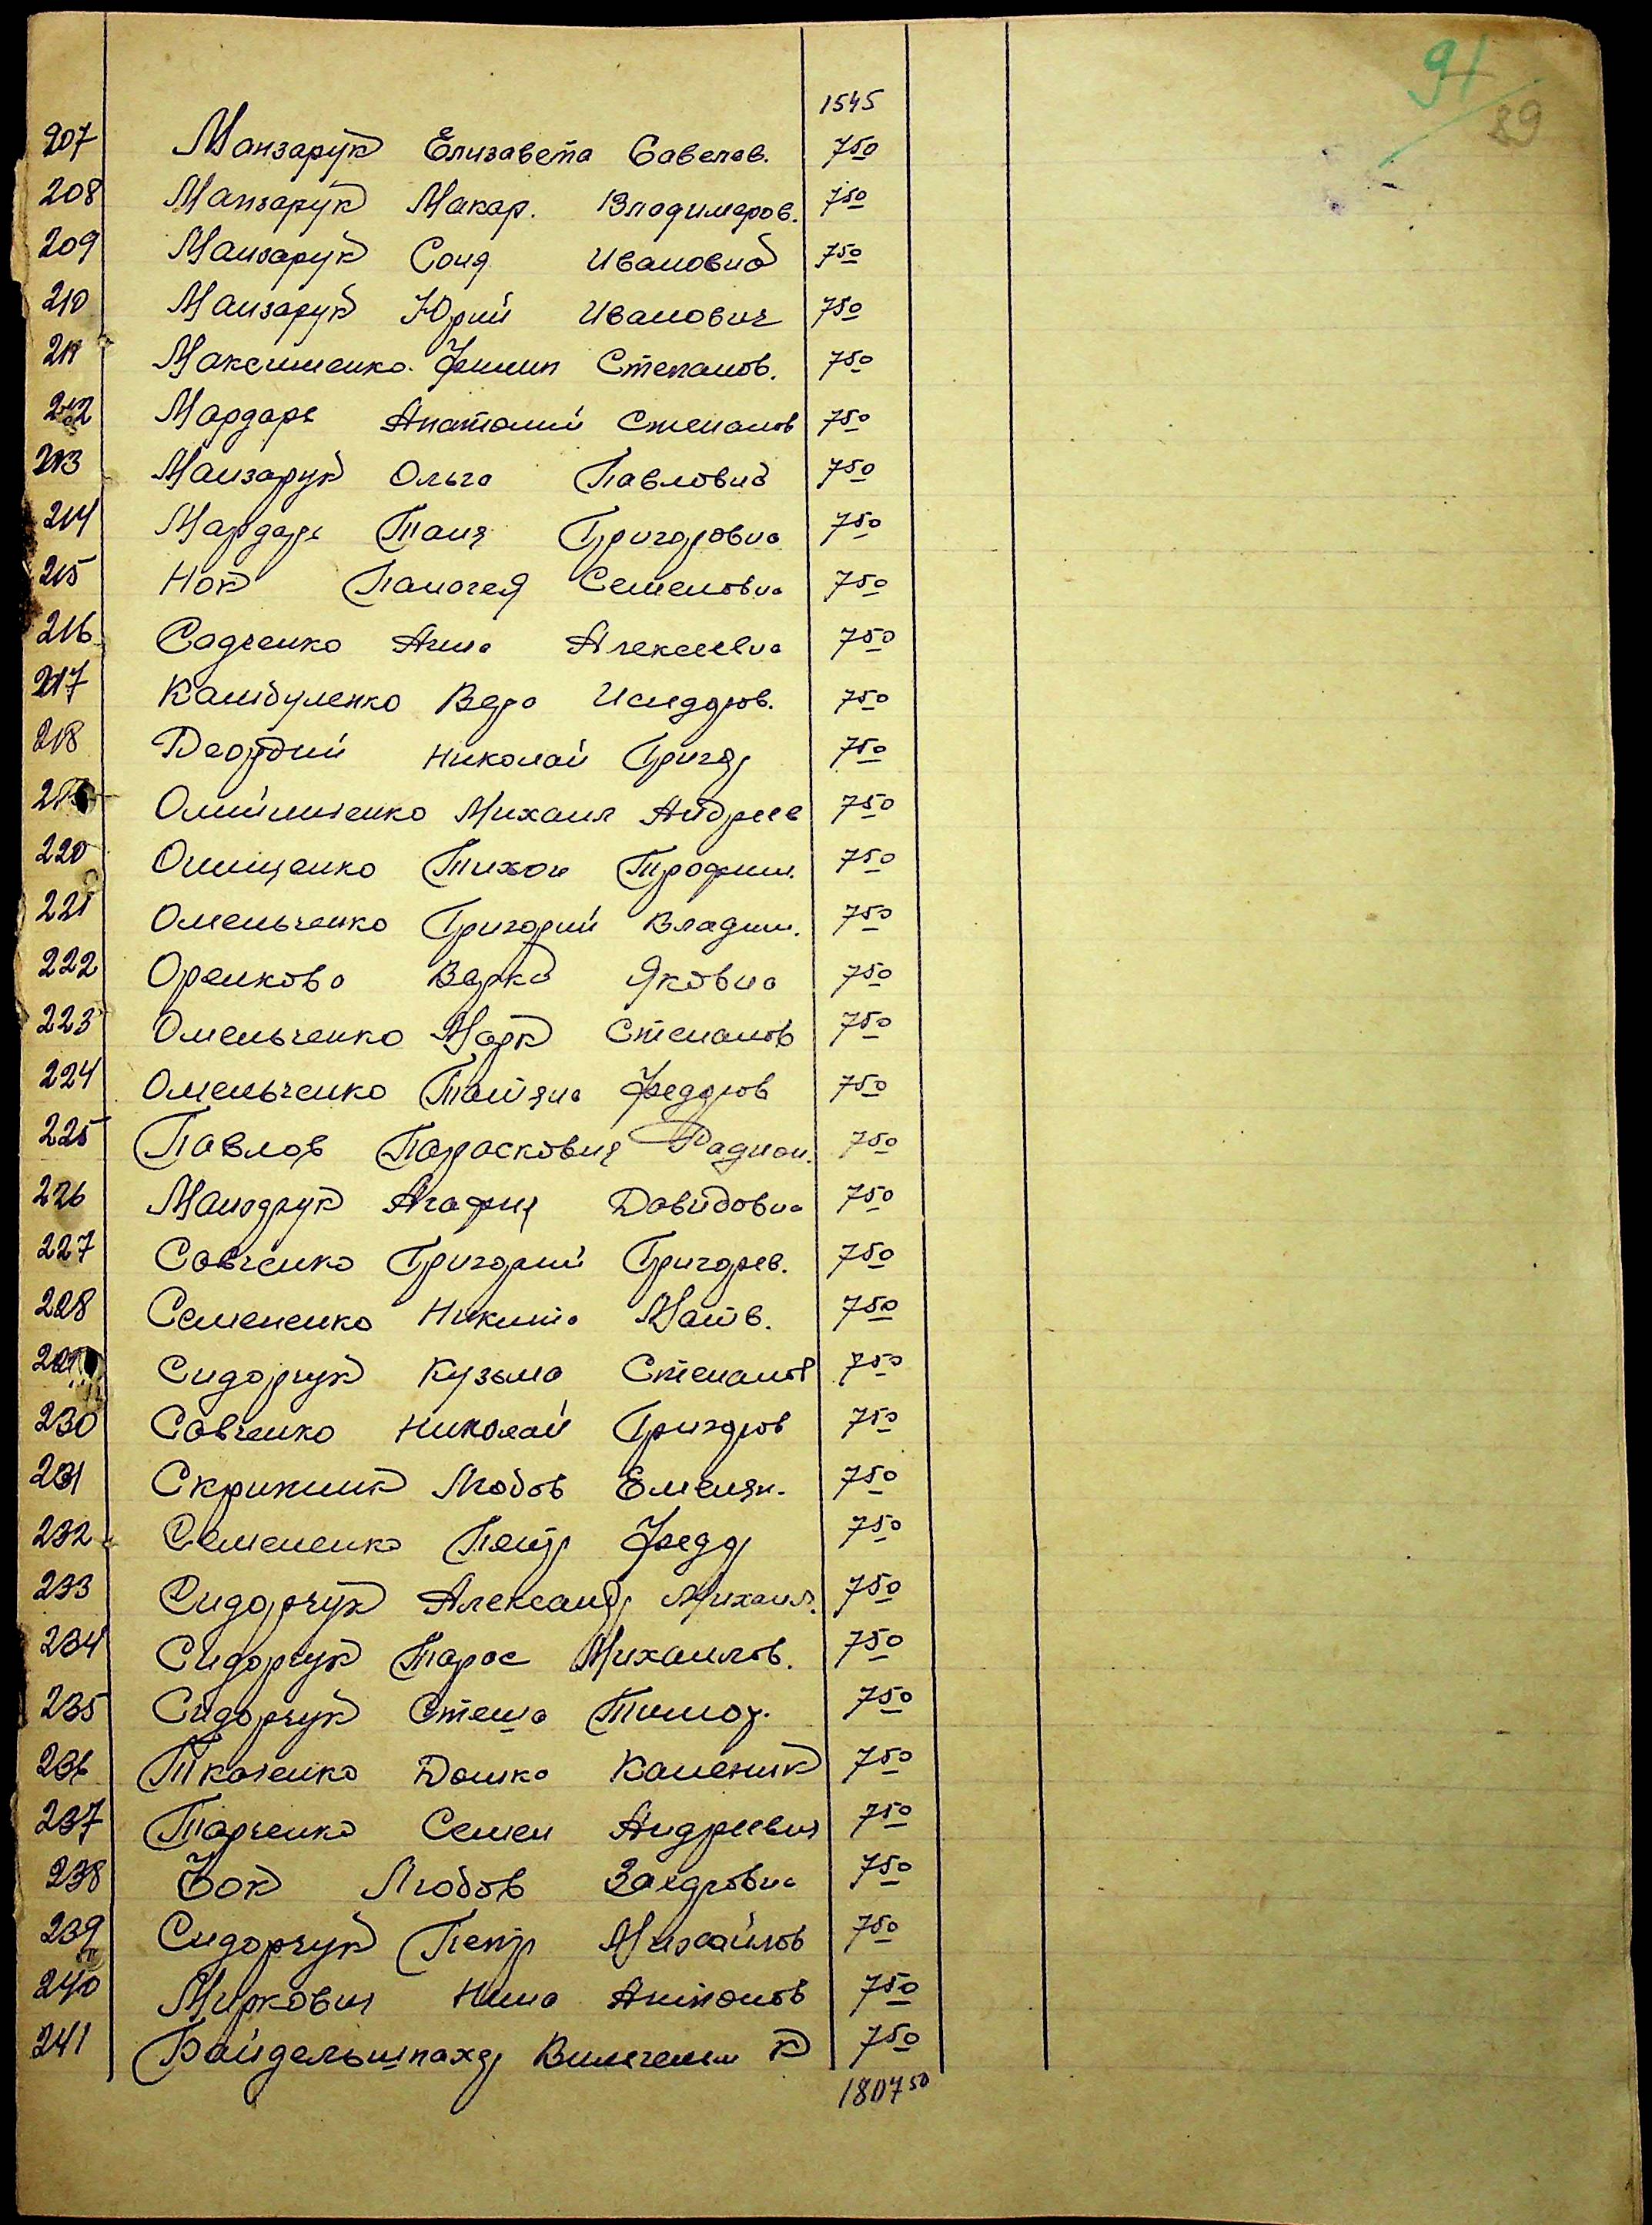 91
89
1545
207 Манзарук Елизавета Савелов. 7 50
208 Манзарук Макар. Владимеров. 7 50
209 Манзарук Соня Ивановна 7 50
210 Манзарук Юрий Иванович 7 50
211 Максименко Филип Степанов. 7 50
212 Мардарь Анатолий Степанов 7 50
213 Манзарук Ольга Павловна 7 50
214 Мардарь Таня Григоровна 7 50
215 Нок Паногея Семеновна 7 50
216 Садченко Анна Алексеевна 7 50
217 Камбуленко Вера Исиддров. 7 50
218 Николай Григор 7 50
Михаил Андреев 7 50
220 Онищенко Тихон Трофим. 7 50
221 Омельченко Григорий Владим. 7 50
222 Оренкова Верка Яковна 7 50
223 Омельченко Марк Степанов 7 50
224 Омельченко Татяна Феддров 7 50
225 Павлов Парасковия Радион. 7 50
226 Мандрук Агафия Давидовна 7 50
227 Савченко Григорий Григорев. 7 50
228 Семененко Никита Матв. 7 50
229 Сидорчук Кузьма Степанов 7 50
230 Савченко Николай Григоров 7 50
231 Скрипник Любов Емелян. 7 50
232 Семененко Петр Федор 7 50
233 Сидорчук Александр Михаил. 7 50
234 Сидорчук Тарас Михаилов. 7 50
235 Сидорчук Стеша Тимоф. 7 50
236 Ткаченко Домка Каленик 7 50
237 Тарченко Семен Андреевич 7 50
238 Любов 7 50
239 Сидорчук Петр Михайлов 7 50
240 Миркович Нина Антонов 7 50
241 Вильгельм К 7 50
1807 50